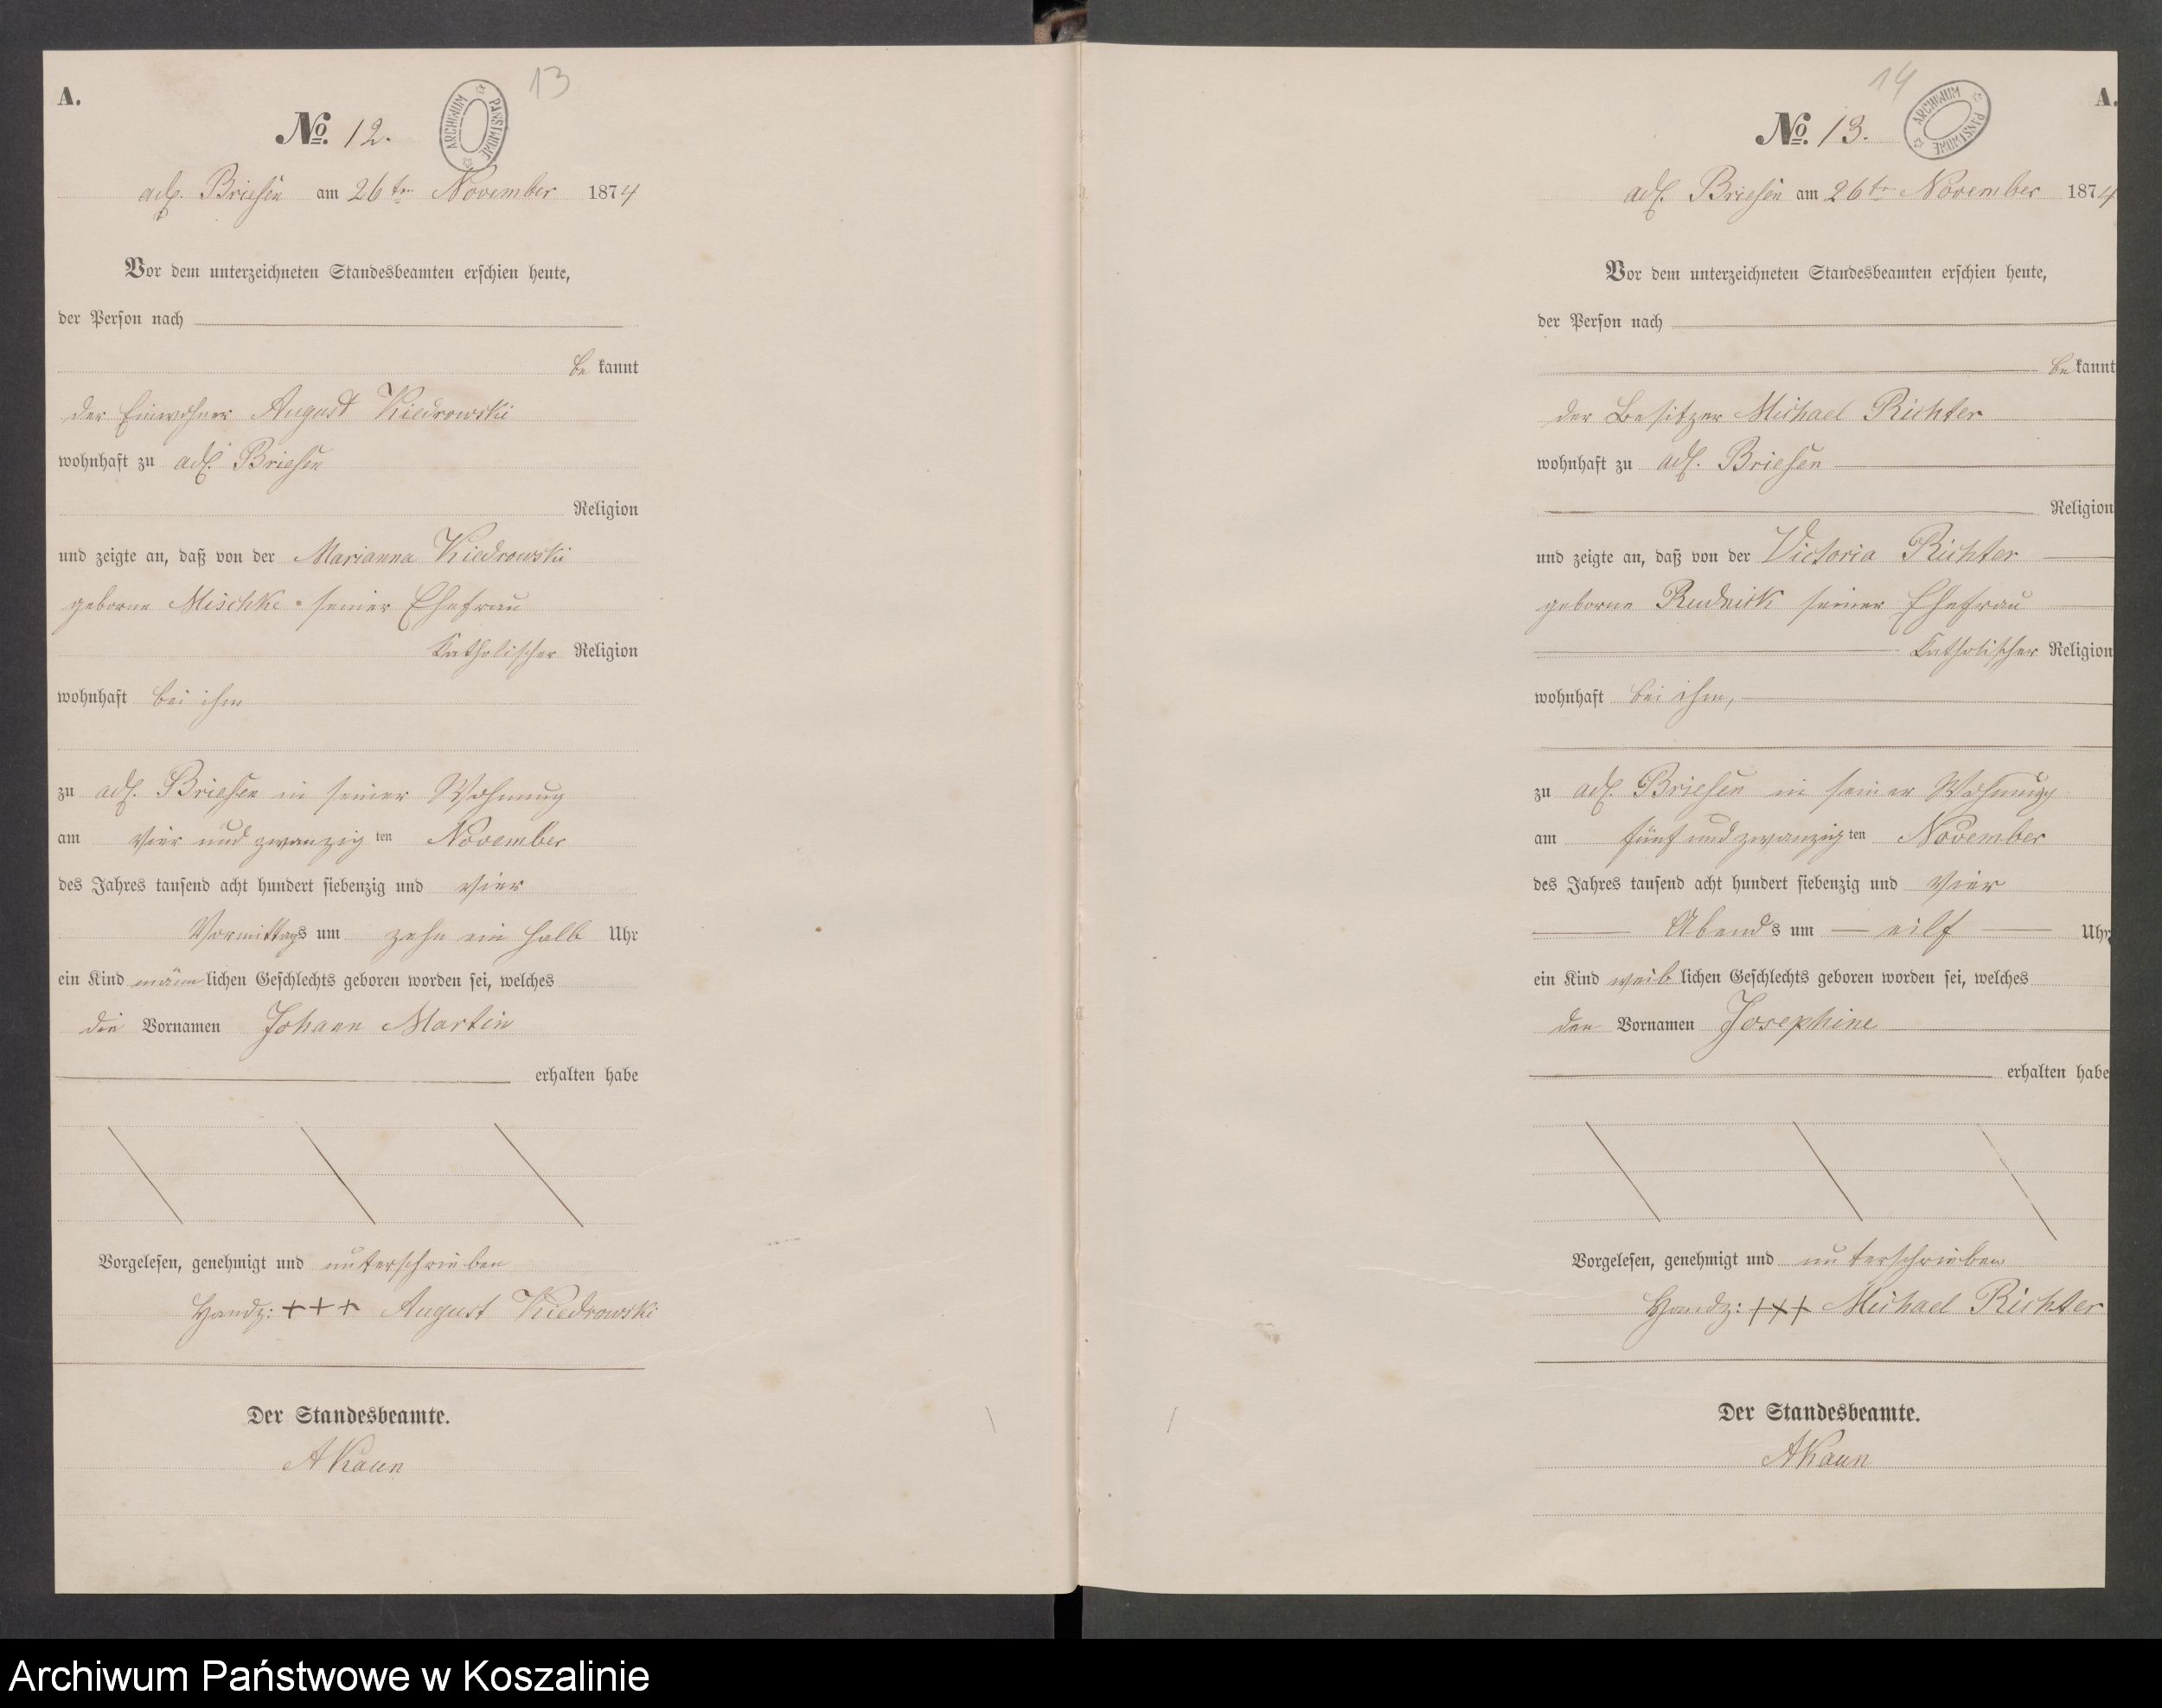 A.
13
No. 12.
ARCHIWUM PAŃSTWOWE
adl. Briesen am 26ten November 1874
Vor dem unterzeichneten Standesbeamten erschien heute,
der Person nach
be kannt
der Einwohner August Kiedrowski
wohnhaft zu adl. Briesen
Religion
und zeigte an, daß von der Marianna Kiedrowski
geborne Mischke seiner Ehefrau
Katholischer Religion
wohnhaft bei ihm
zu adl. Briesen in seiner Wohnung
am Vier und zwanzig ten November
des Jahres tausend acht hundert siebenzig und Vier
Vormittags um zehn ein halb Uhr
ein Kind männ lichen Geschlechts geboren worden sei, welches
die Vornamen Johann Martin
erhalten habe
Vorgelesen, genehmigt und unterschrieben
Handz: +++ August Kiedrowski
Der Standesbeamte.
AKaun
14
A.
No. 13.
ARCHIWUM PAŃSTWOWE
adl. Briesen am 26ten November 1874
Vor dem unterzeichneten Standesbeamten erschien heute,
der Person nach
be kannt
der Besitzer Michael Richter
wohnhaft zu adl. Briesen
Religion
und zeigte an, daß von der Victoria Richter
geborne Rudnick seiner Ehefrau
Catholischer Religion
wohnhaft bei ihm,
zu adl. Briesen in seiner Wohnung
am fünf und zwanzig ten November
des Jahres tausend acht hundert siebenzig und Vier
Abends um eilf Uhr
ein Kind weib lichen Geschlechts geboren worden sei, welches
den Vornamen Josephine
erhalten habe
Vorgelesen, genehmigt und unterschrieben
Handz: +++ Michael Richter
Der Standesbeamte.
AKaun
Archiwum Państwowe w Koszalinie